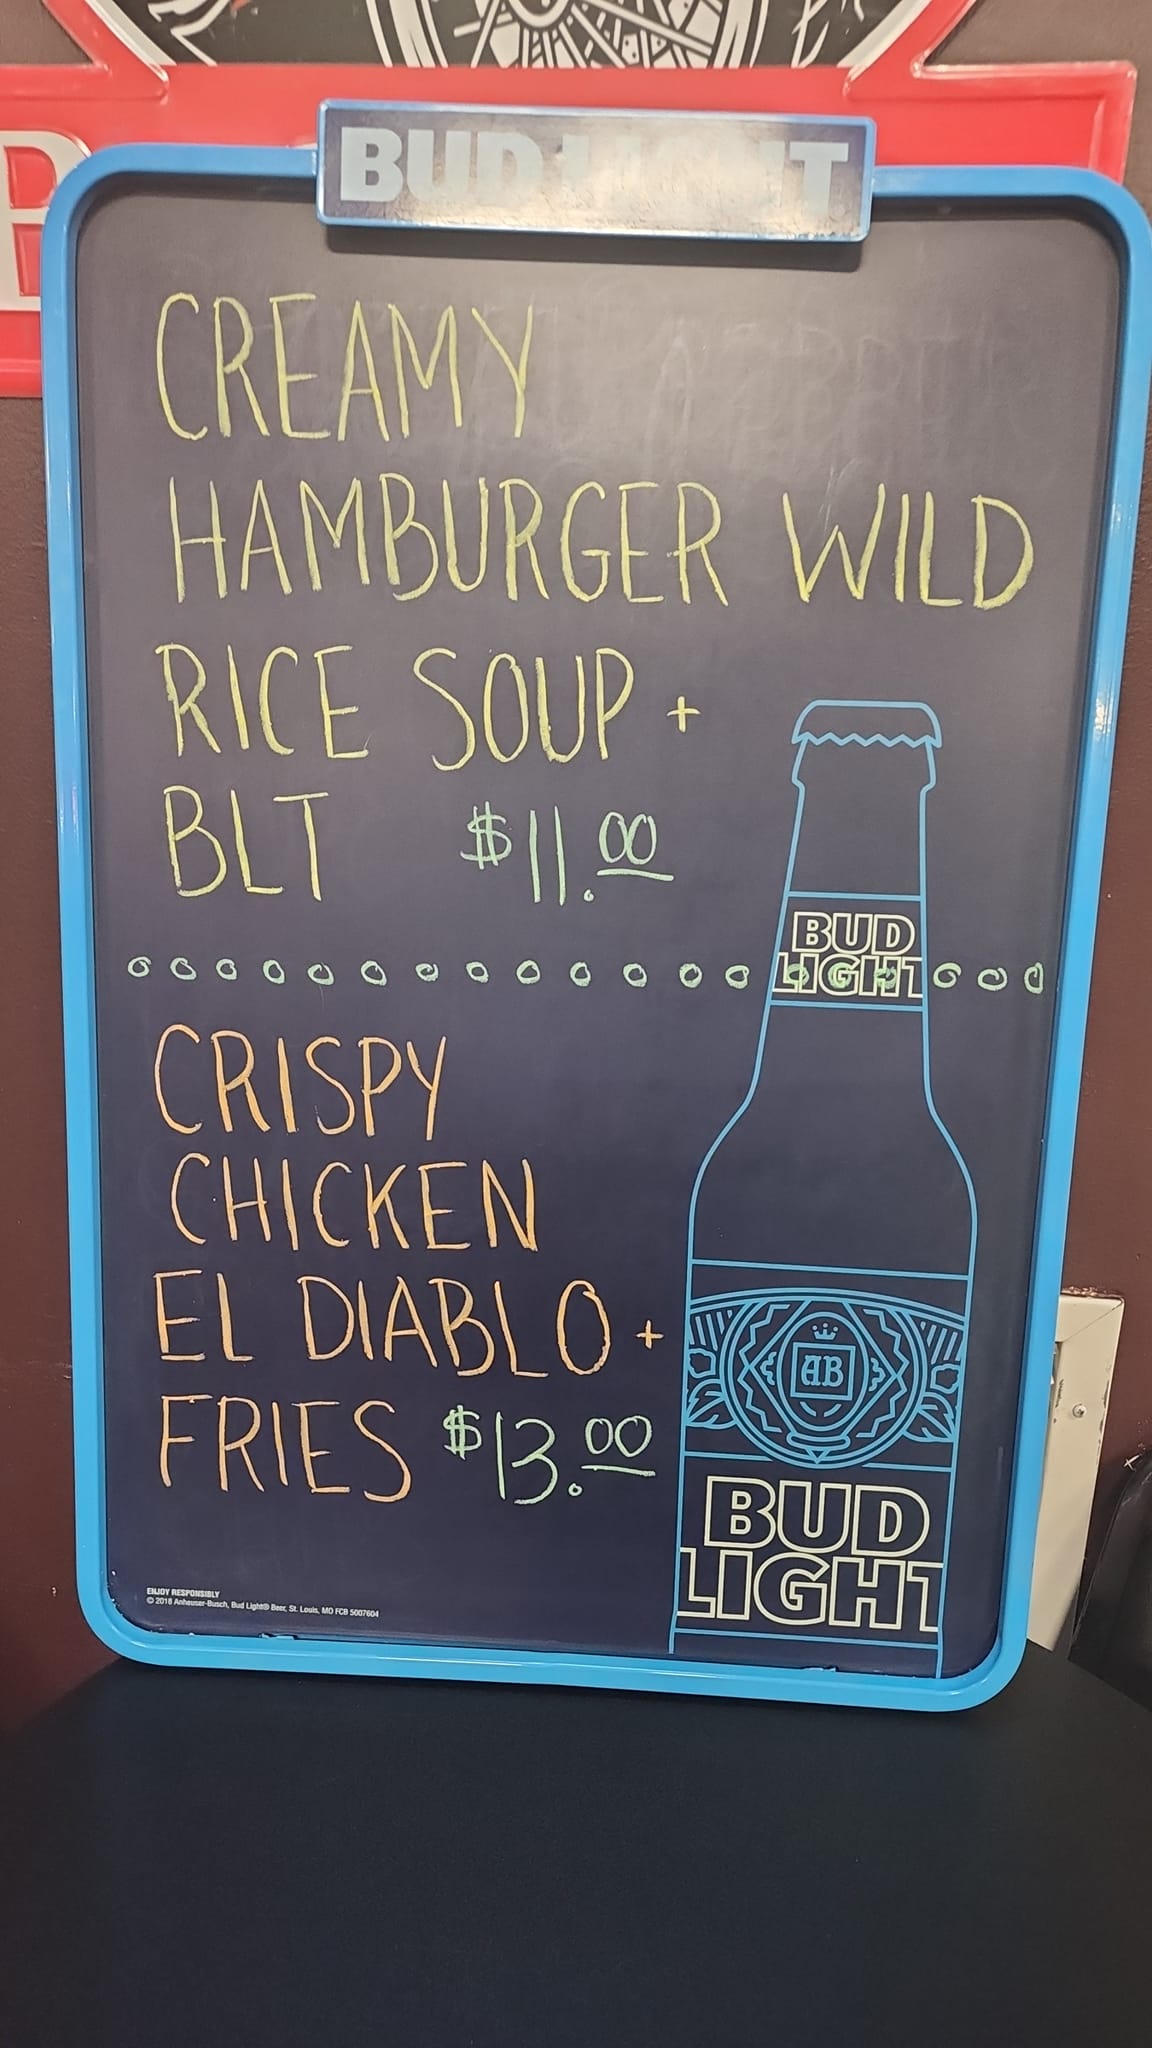 BUD LIGHT
CREAMY
HAMBURGER WILD
RICE SOUP +
BLT $11.00
BUD
LIGHT
CRISPY
CHICKEN
EL DIABLO +
FRIES $13.00
AB
BUD
LIGHT
ENJOY RESPONSIBLY
© 2018 Anheuser-Busch, Bud Light® Beer, St. Louis, MO FCB 5007604